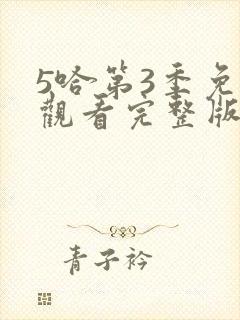 5哈第3季免
觀看完整版
青子衿